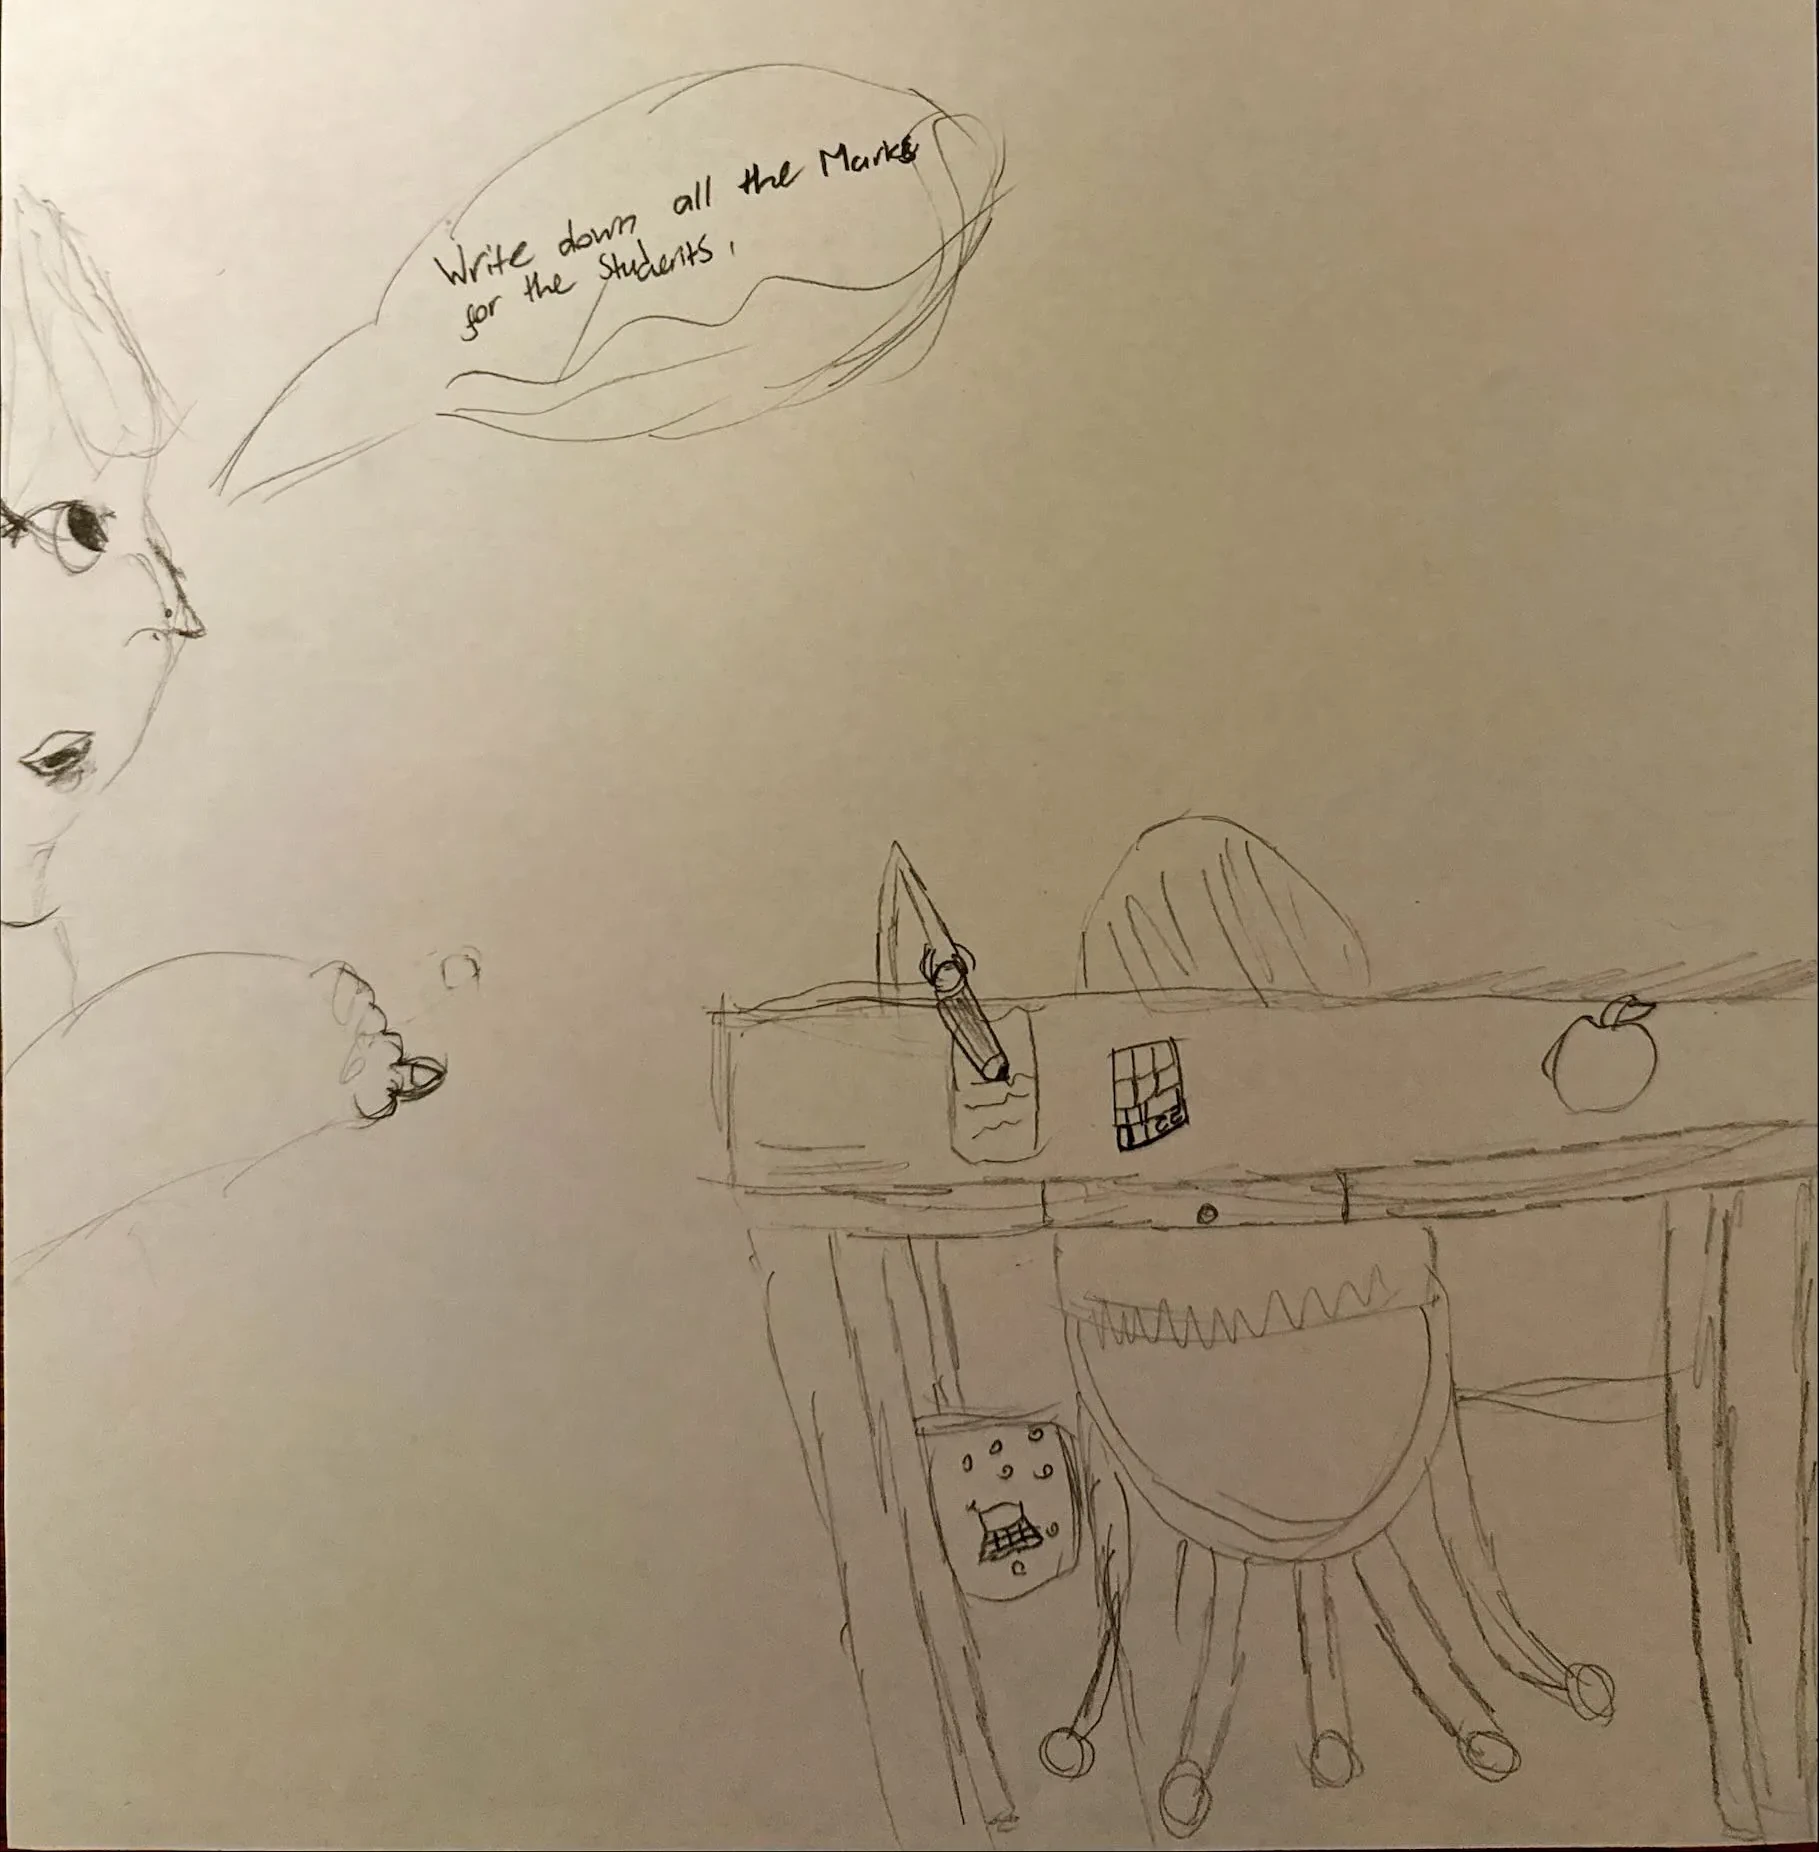 Write down all the Marks
for the Students.